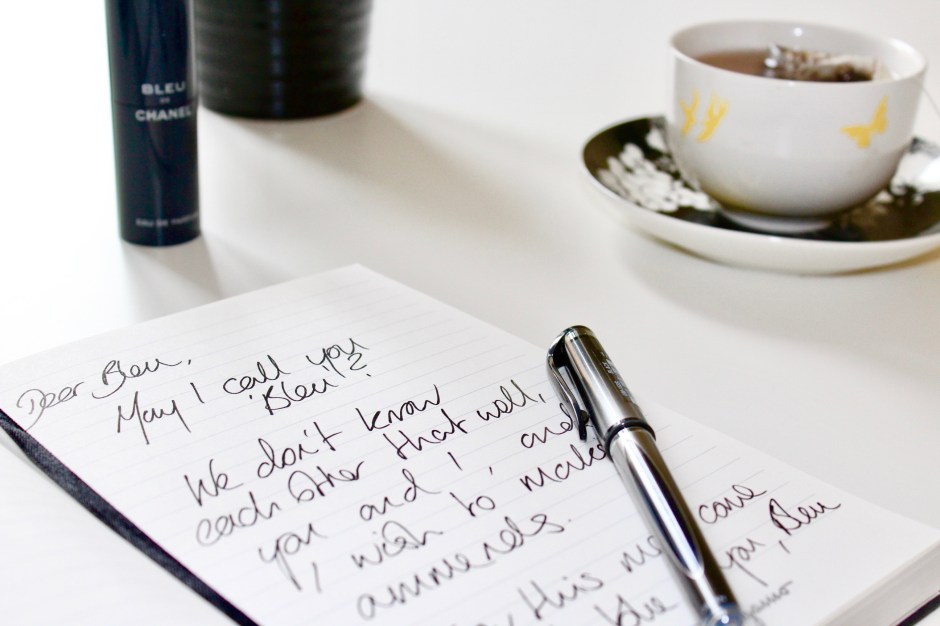 BLEU
DE
CHANEL
EAU DE PARFUM
Dear Bleu,
May I call you
'Bleu'?
We don't know
each other that well,
you and I, and
I, wish to make
ammends.
this me come
blue you, Bleu